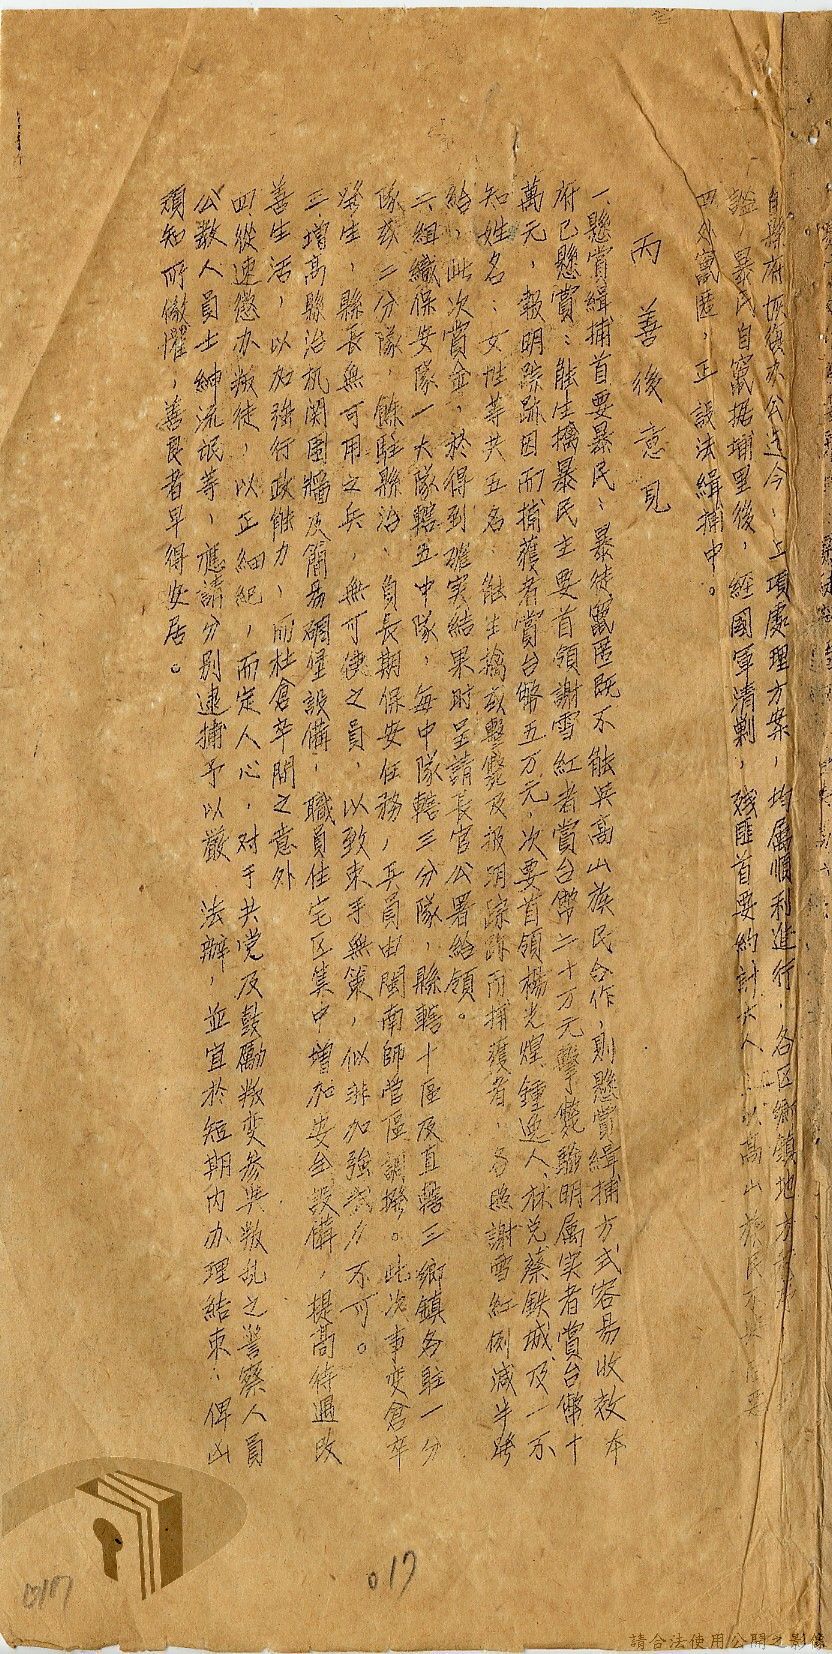 自縣府恢復办公迄今，上項處理方案，均属順利進行，各区鄉鎮地方
謐，暴民自竄据埔里後，經國軍清剿，残匪首要約計六人，以高山族民不與
四外竄匿，正設法緝捕中。
丙 善後意見
一、懸賞緝捕首要暴民：暴徒竄匿既不能與高山族民合作，則懸賞緝捕方式容易收效本
府已懸賞：能生擒暴民主要首領謝雪紅者賞台幣二十万元擊斃驗明属实者賞台幣十
萬元，報明踪跡因而捕獲者賞台幣五万元，次要首領楊光煌鍾逸人、林兑蔡鉄城及一不
知姓名：女性等共五名：能生擒或擊斃及报明踪跡而捕獲者，各照謝雪紅例減半發
給，此次賞金，於得到確実結果時呈請長官公署給領。
二、組織保安隊一大隊轄五中隊，每中隊轄三分隊，縣轄十區及直轄三鄉鎮各駐一分
隊或二分隊，餘駐縣治，負長期保安任務，兵員由閩南師管區調撥。此次事变倉卒
發生，縣長無可用之兵，無可使之員，以致束手無策，似非加強武力不可。
三、增高縣治机関圍牆及簡易碉堡設備，職員住宅区集中增加安全設備，提高待遇改
善生活，以加強行政能力，而杜倉卒間之意外
四、從速懲办叛徒，以正綱紀，而定人心，对于共党及鼓勵叛变参與叛乱之警察人員
公教人員士紳流氓等，應請分別逮捕予以嚴 法辦，並宜於短期內办理結束，俾凶
頑知所儆懼，善良者早得安居。
017
017
請合法使用公開之影像